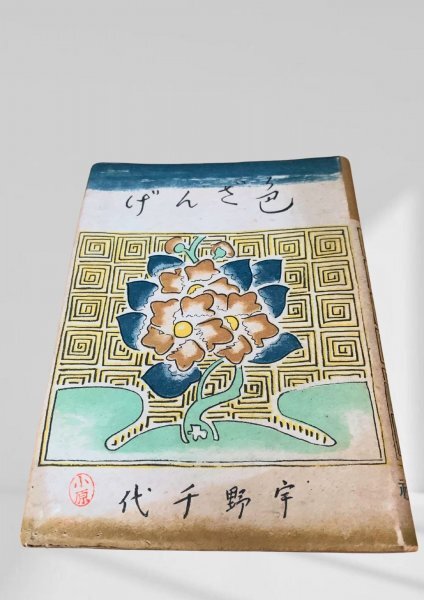 色ざんげ
宇野千代
小原